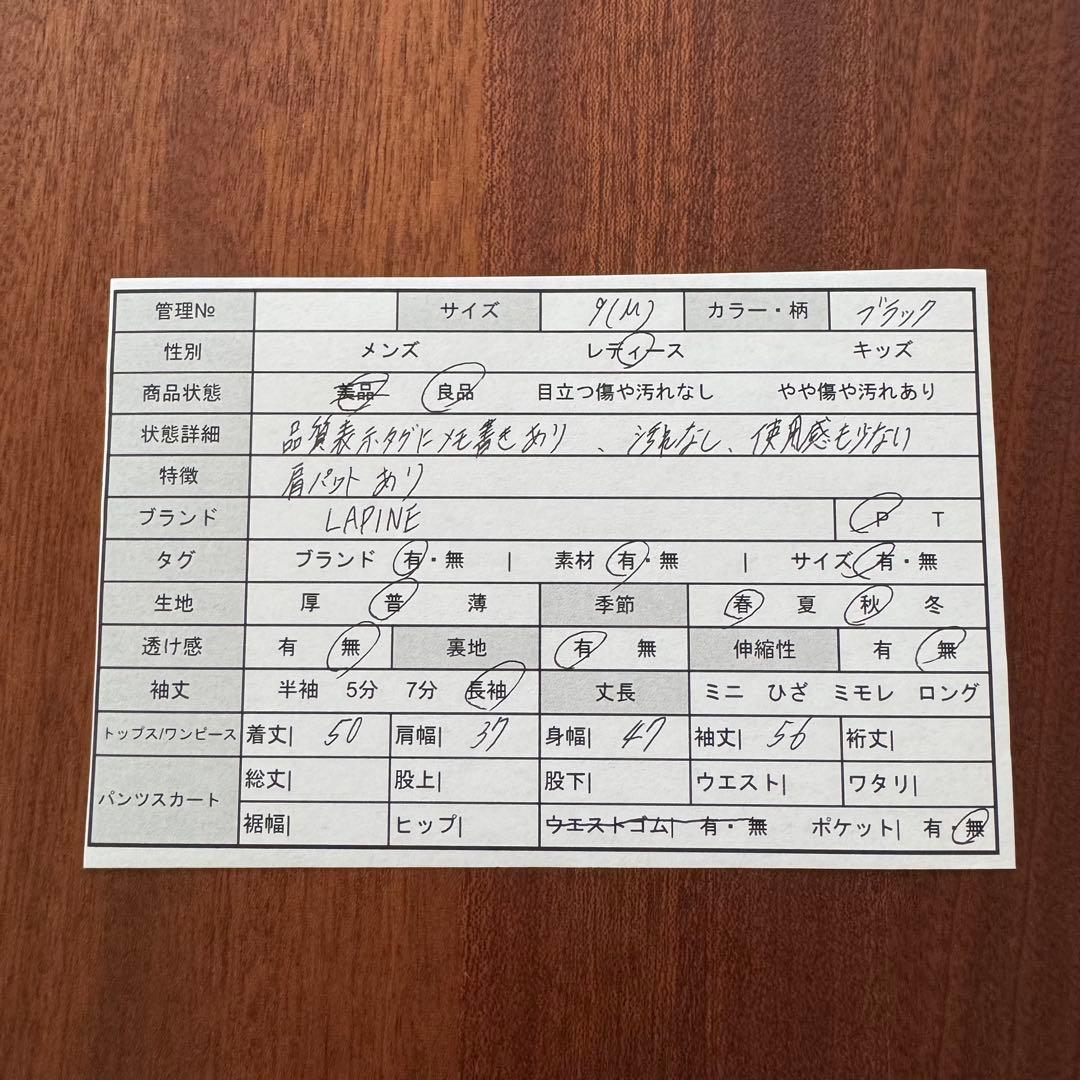 管理№ サイズ 9(M) カラー・柄 ブラック
性別 メンズ レディース キッズ
商品状態 美品 良品 目立つ傷や汚れなし やや傷や汚れあり
状態詳細 品質表示タグにメモ書きあり、汚れなし、使用感も少ない
特徴 肩パットあり
ブランド LAPINE P T
タグ ブランド 有・無 | 素材 有・無 | サイズ 有・無
生地 厚 普 薄 季節 春 夏 秋 冬
透け感 有 無 裏地 有 無 伸縮性 有 無
袖丈 半袖 5分 7分 長袖 丈長 ミニ ひざ ミモレ ロング
トップス/ワンピース 着丈| 50 肩幅| 37 身幅| 47 袖丈| 56 裄丈|
パンツスカート 総丈| 股上| 股下| ウエスト| ワタリ|
裾幅| ヒップ| ウエストゴム| 有・無 ポケット| 有・無